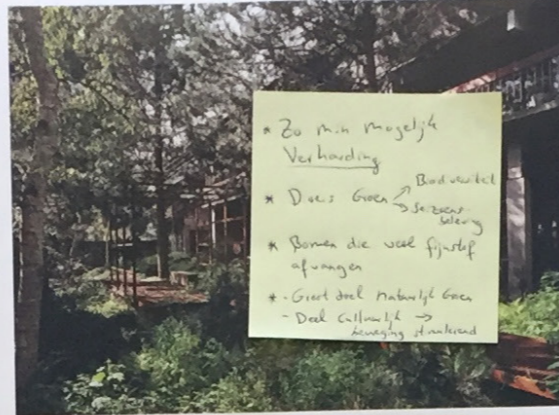 * Zo min mogelijk
Verharding
* Divers Groen → Biodiversiteit
→ Seizoens
beleving
* Bomen die veel fijnstof
afvangen
* - Groot deel Natuurlijk Groen
- Deel Cultuurlijk →
beweging stimulerend